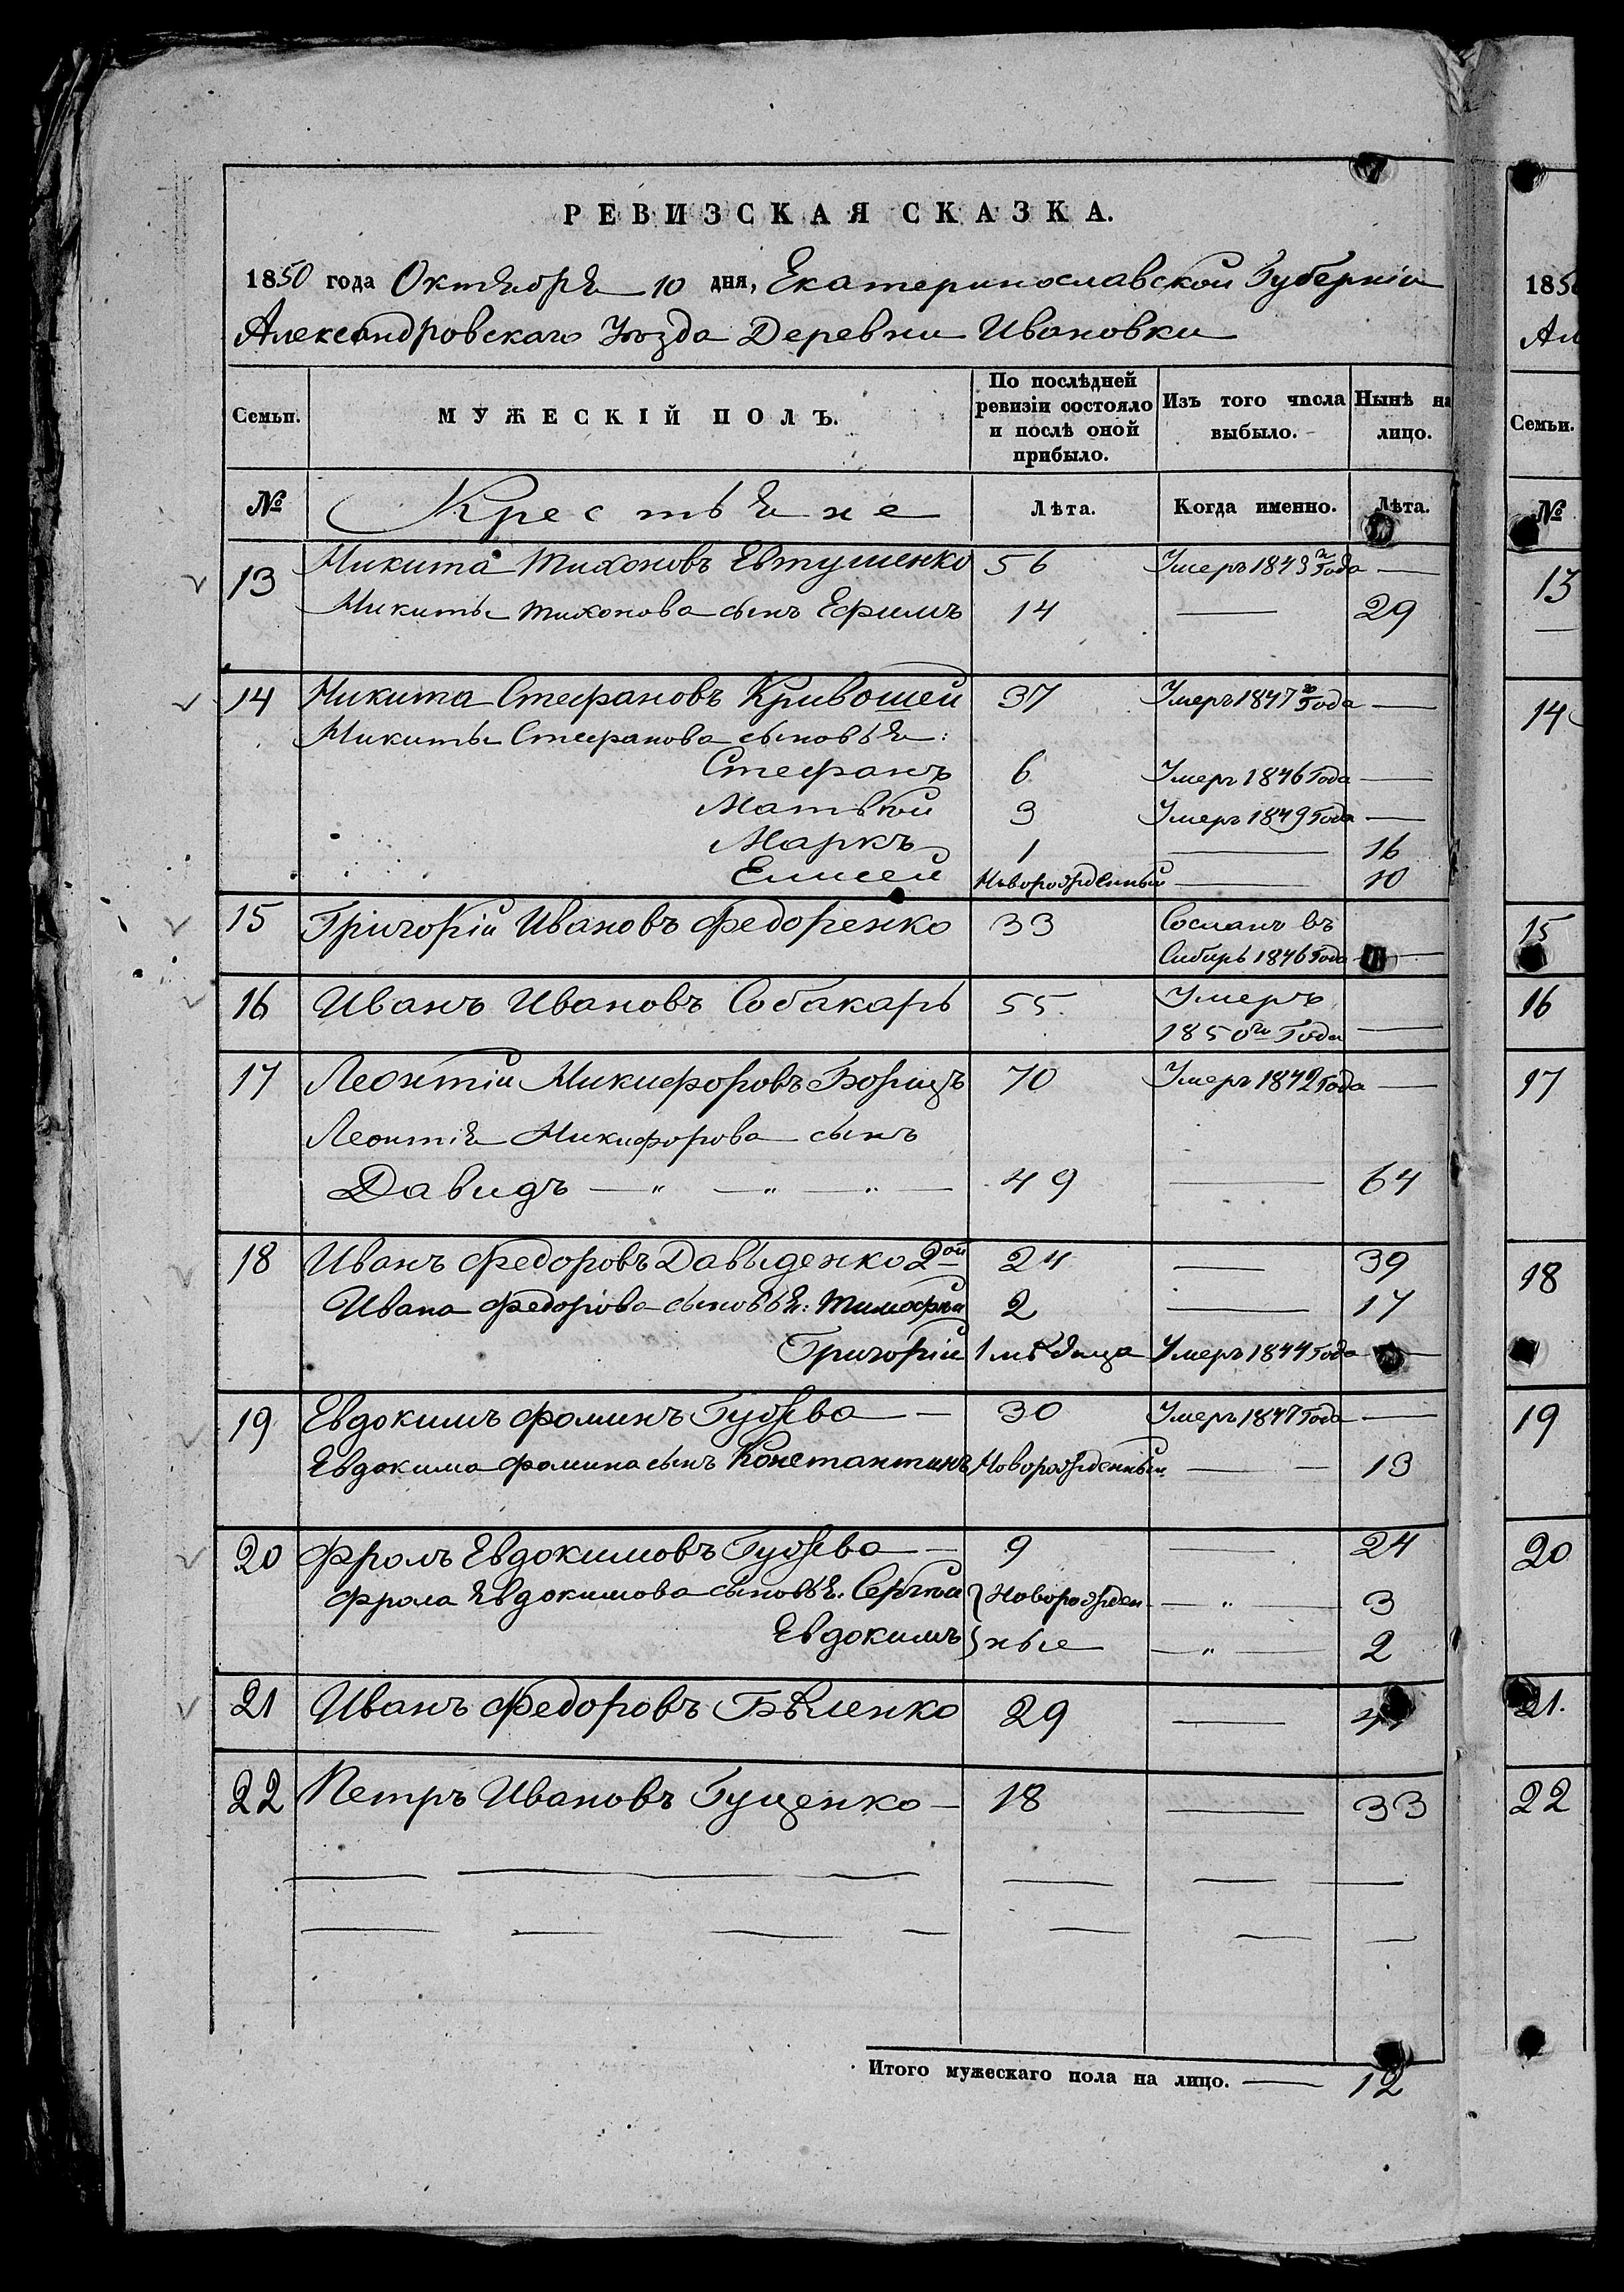 РЕВИЗСКАЯ СКАЗКА.
1850 года Октября 10 дня, Екатеринославской Губерніи
Александровскаго Уѣзда Деревни Ивановки
Семьи. МУЖЕСКІЙ ПОЛЪ. По послѣдней ревизіи состояло и послѣ оной прибыло. Изъ того числа выбыло. Нынѣ на лицо.
№ Крестьяне Лѣта. Когда именно. Лѣта.
13 Микита Тихоновъ Евтушенко 56 Умеръ 1843го Года —
Микиты Тихонова сынъ Ефимъ 14 — 29
14 Микита Стефановъ Кривошей 37 Умеръ 1847го Года —
Микиты Стефанова сыновья:
Стефанъ 6 Умеръ 1846 Года —
Матвѣй 3 Умеръ 1849 Года —
Маркъ 1 — 16
Елисей Новорожденный — 10
15 Григорій Ивановъ Федоренко 33 Сосланъ въ
Сибирь 1846 Года —
16 Иванъ Ивановъ Собакарь 55. Умеръ
1850го Года —
17 Леонтій Микифоровъ Борецъ 70 Умеръ 1842 Года —
Леонтія Микифорова сынъ
Давидъ — „ — „ — „ — 49 — 64
18 Иванъ Федоровъ Давыденко 2ой 24 — 39
Ивана Федорова сыновья: Тимофѣй 2 — 17
Григорій 1 мѣсяца Умеръ 1844 Года —
19 Евдокимъ Фоминъ Гузѣва — 30 Умеръ 1847 Года —
Евдокима Фомина сынъ Константинъ Новорожденный — — 13
20 Фролъ Евдокимовъ Гузѣва — 9 — 24
Фрола Евдокимова сыновья: Сергѣй } Новорожден- — „ — 3
Евдокимъ } ные — „ — 2
21 Иванъ Федоровъ Бѣленко 29 —
22 Петръ Ивановъ Гуценко — 18 — 33
Итого мужескаго пола на лицо. — 12
185
Ал
Семьи.
№
13
14
15
16
17
18
19
20
21.
22